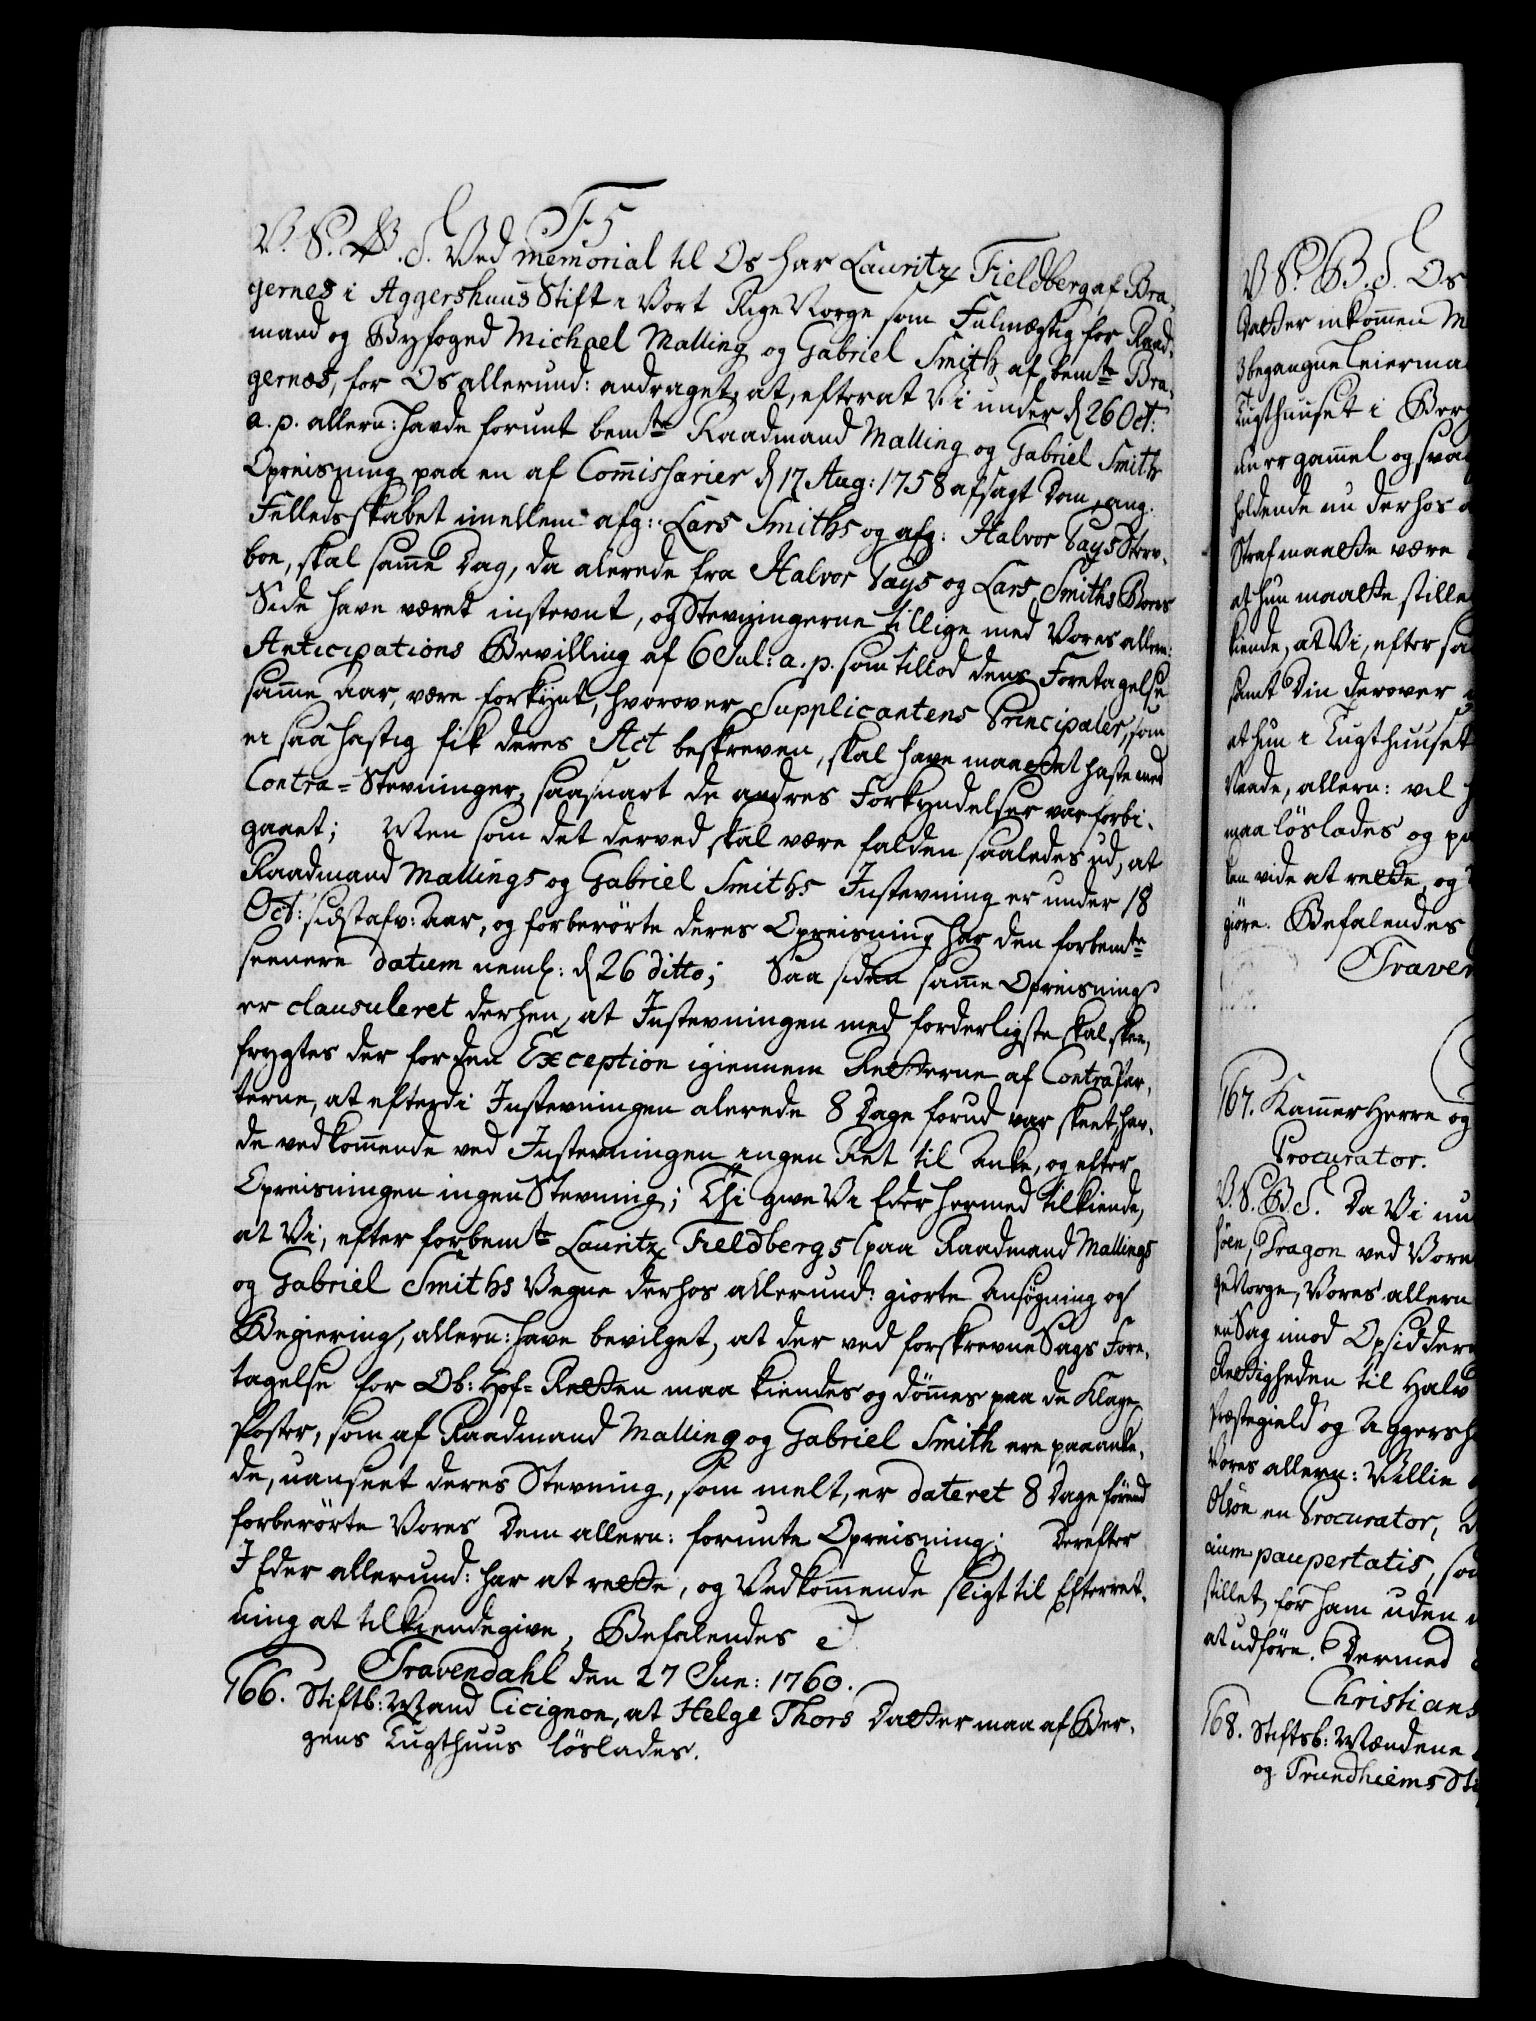 F5
V. S. B. d. Ved memorial til Os har Lauritz Fieldberg af Bra-
gernes i Aggershuus Stift i Vort Rige Norge som Fulmægtig for Raad-
mand og Byfoged Michael Malling og Gabriel Smith af bemte Bra-
gernæs, for Os allerund: andraget, at, efterat Vi under d 26 Oct:
a. p. allern: havde forunt bemte Raadmand Malling og Gabriel Smith
Opreisning paa en af Commissarier d 17 Aug: 1758 afsagt Dom, ang.
Felledsskabet imellem afg: Lars Smiths og afg: Halvor Pays Sterv-
boe, skal samme Dag, da alerede fra Halvor Pays og Lars Smiths Boers
Side have været instevnt, og Stevningerne tillige med Vores allern:
Anticipations Bevilling af 6 Jul: a. p. som tillod dens Foretagelse
samme Aar, være forkynt, hvorover Supplicantens Principaler, som
ei saa hastig fik deres Act beskreven, skal have maattet haste med
Contra-Stevninger, saasnart de andres Forkyndelser var forbi-
gaaet; Men som det derved skal være falden saaledes ud, at
Raadmand Mallings og Gabriel Smiths Instevning er under 18
Oct: sidstafv: Aar, og forberörte deres Opreisning har den forbemte
seenere datum neml: d 26 ditto; Saa siden samme Opreisning
er clausuleret derhen, at Instevningen med forderligste skal skee,
frygtes der for den Exception igiennem Retterne af Contra Par-
terne, at efterdi Instevningen alerede 8 Dage forud var skeet, hav-
de vedkommende ved Instevningen ingen Ret til Anke, og efter
Opreisningen ingen Stevning; Thi give Vi Eder hermed tilkiende,
at Vi, efter forbemte Lauritz Fieldbergs paa Raadmand Mallings
og Gabriel Smiths Vegne derhos allerund: giorte Ansøgning og
Begiering, allern: have bevilget, at der ved forskrevne Sags Fore-
tagelse for Ob: Hof-Retten maa kiendes og dömmes paa de Klage-
Poster, som af Raadmand Malling og Gabriel Smith ere paaanke-
de, uanseet deres Stevning, som melt, er dateret 8 Dage förend
forberörte Vores Dem allern: forunte Opreisning; Derefter
I Eder allerund: har at rette, og Vedkommende sligt til Efterret-
ning at tilkiendegive, Befalendes
Travendahl den 27 Jun: 1760.
166. Stiftb: Mand Cicignon, at Helge Thors Datter maa af Ber-
gens Tugthuus löslades.
V. S. B. d. Os
Datter inkommen
3 begangne Leierma
Tugthuuset i Berg
un er gammel og sva
holdende nu derhos
Straf maatte være
at hun maatte stille
kiende, at Vi, efter
samt Din derover
at hun i Tugthuuset
Naade, allern: vil
maa löslades og
kan vide at rette, og
giöre. Befalendes
Traven
167. Kammer Herre og
Procurator.
V. S. B. d. Da Vi
söen, Dragon ved Vore
ge Norge, Vores allern
en Sag imod Opsidder
Rettigheden til Halv
Præstegield og Aggersh
Vores allern: Villie
Olsön en Procurator,
cium paupertatis,
stillet, for ham uden
at udföre. Dermed
Christians
168. Stiftsb: Mændene
og Trundhiems